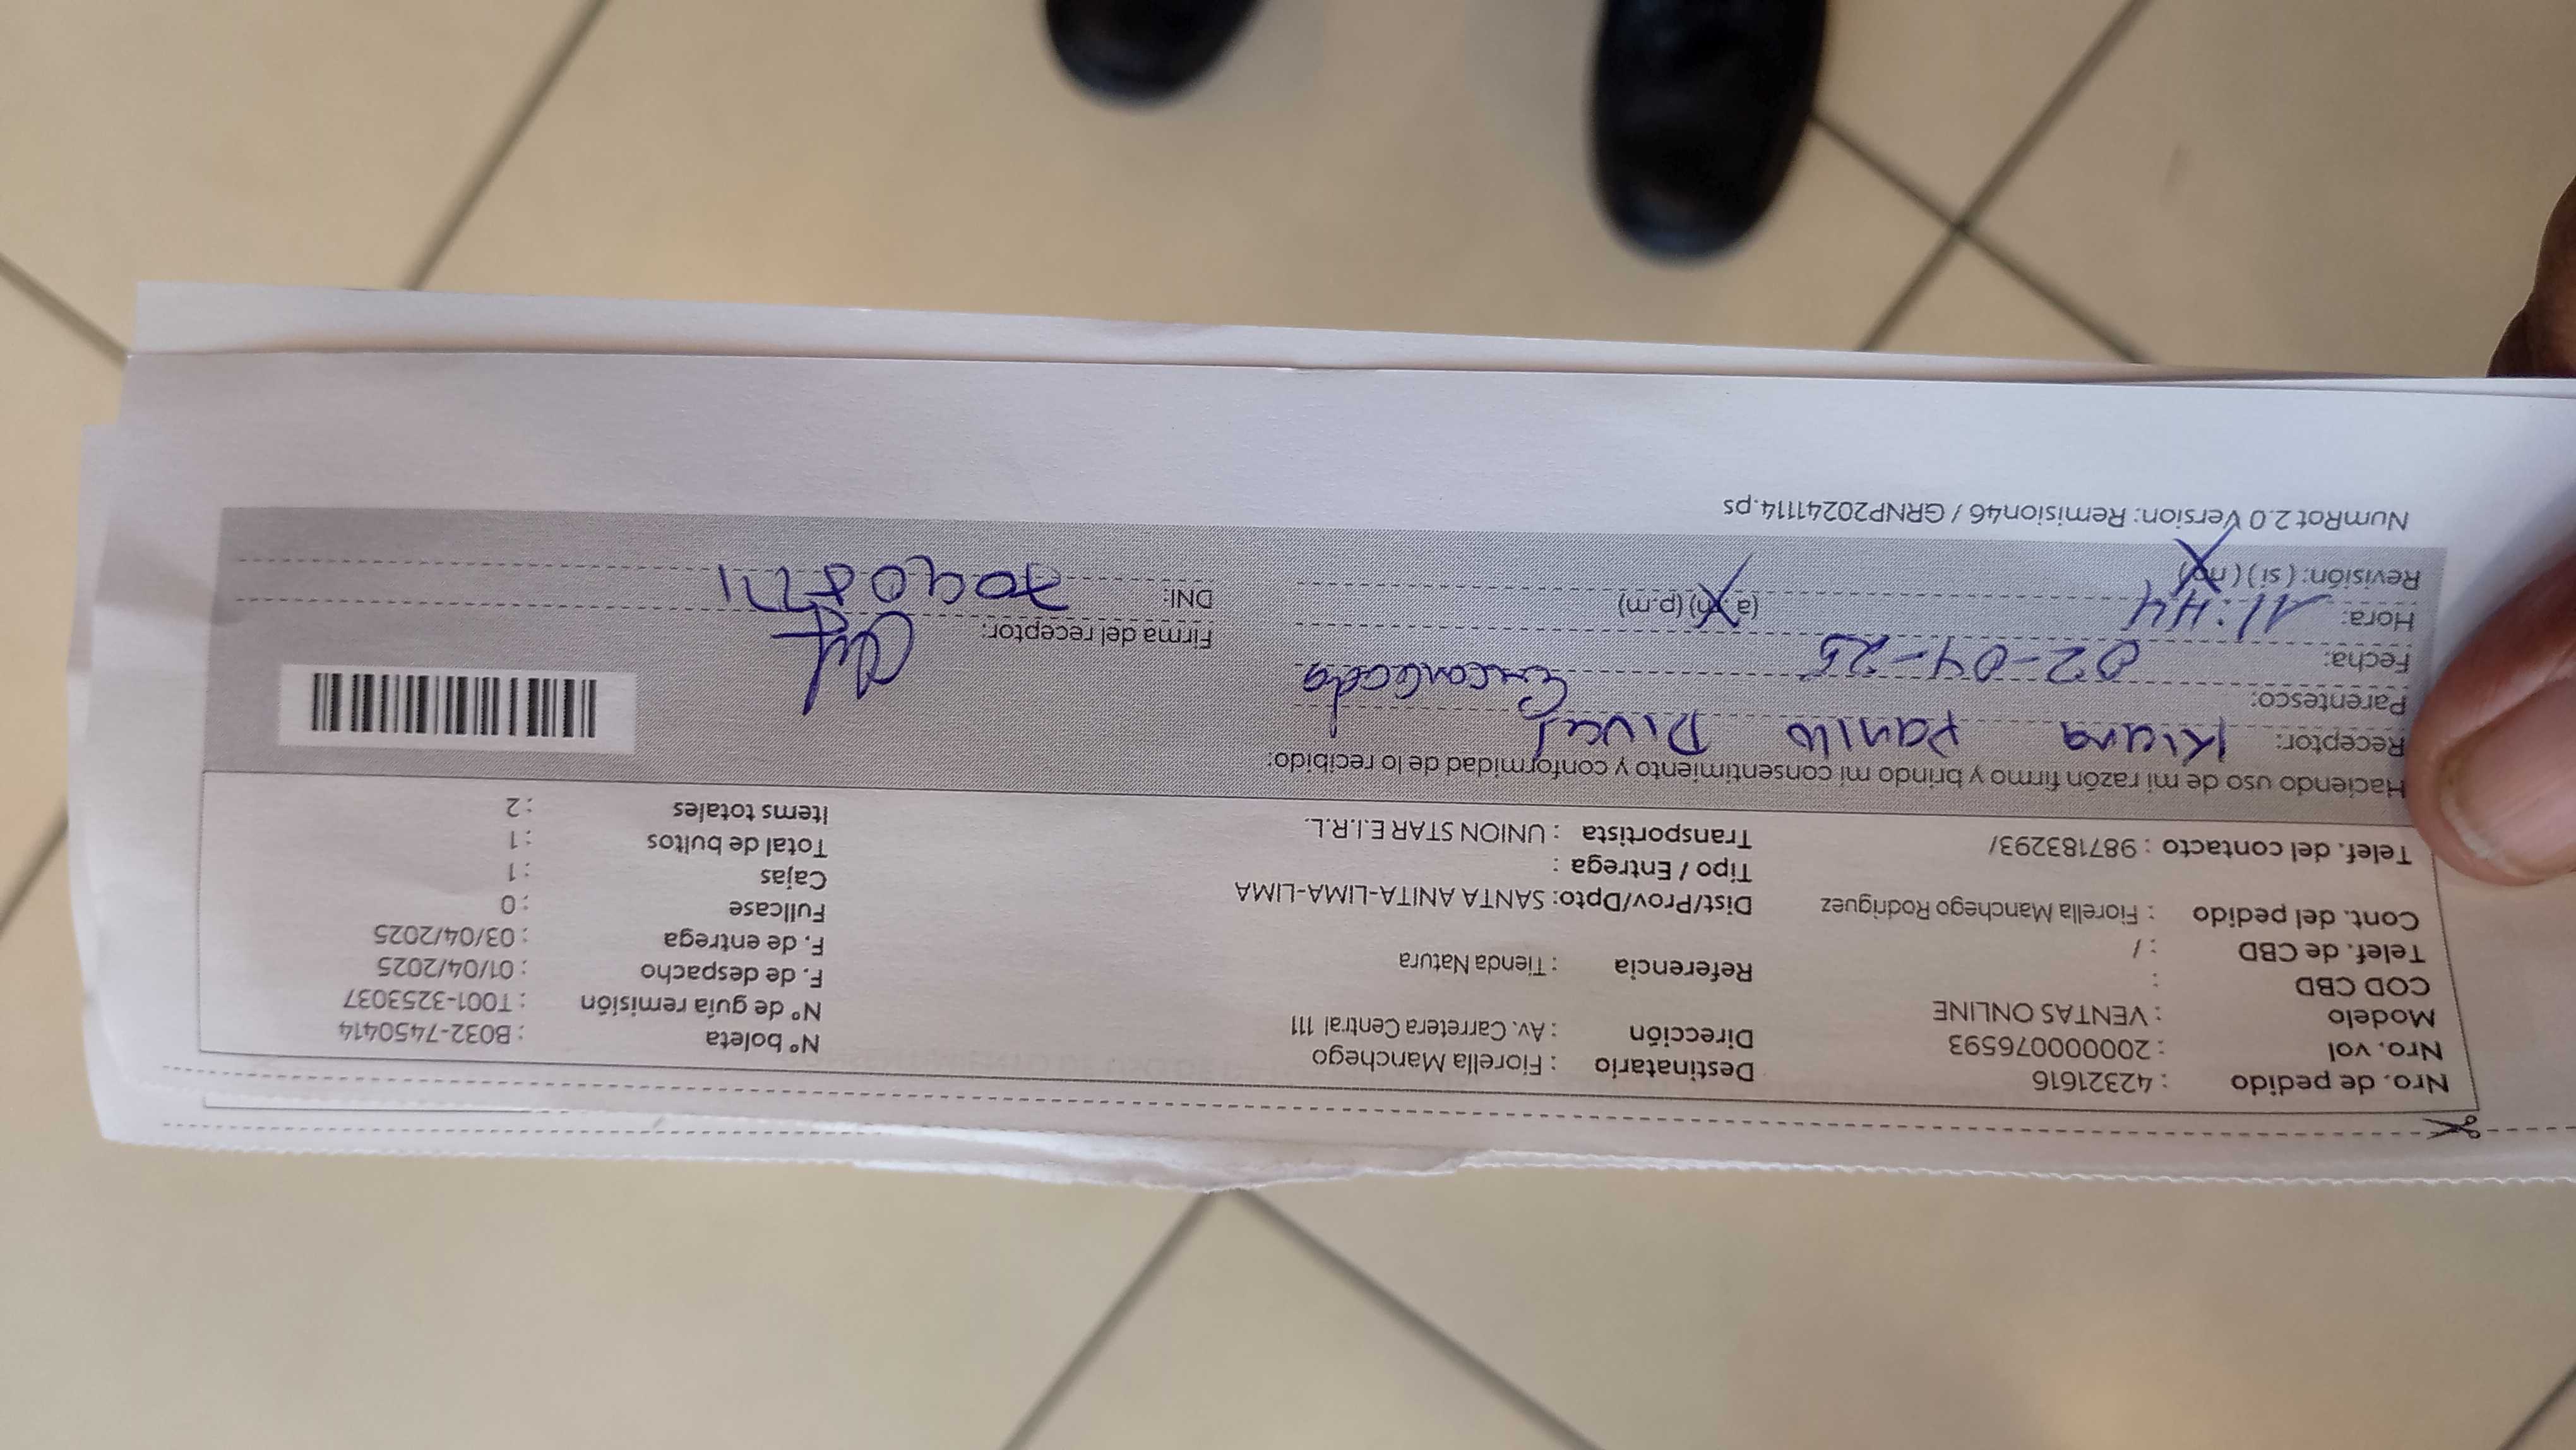 Nro. de pedido : 42321616
Nro. vol : 20000076593
Modelo : VENTAS ONLINE
COD CBD :
Telef. de CBD : /
Cont. del pedido : Fiorella Manchego Rodriguez
Telef. del contacto : 987183293/
Destinatario : Fiorella Manchego
Dirección : Av. Carretera Central 111
Referencia : Tienda Natura
Dist/Prov/Dpto: SANTA ANITA-LIMA-LIMA
Tipo / Entrega :
Transportista : UNION STAR E.I.R.L.
Nº boleta : B032-7450414
Nº de guía remisión : T001-3253037
F. de despacho : 01/04/2025
F. de entrega : 03/04/2025
Fullcase : 0
Cajas : 1
Total de bultos : 1
Items totales : 2
Haciendo uso de mi razón firmo y brindo mi consentimiento y conformidad de lo recibido:
Receptor: Kiara
Parentesco:
Fecha: 02-04-25
Hora: 11:44 (a.m) (p.m)
Revisión: (si) (no)
Firma del receptor:
DNI:
NumRot 2.0 Version: Remision46 / GRNP20241114.ps